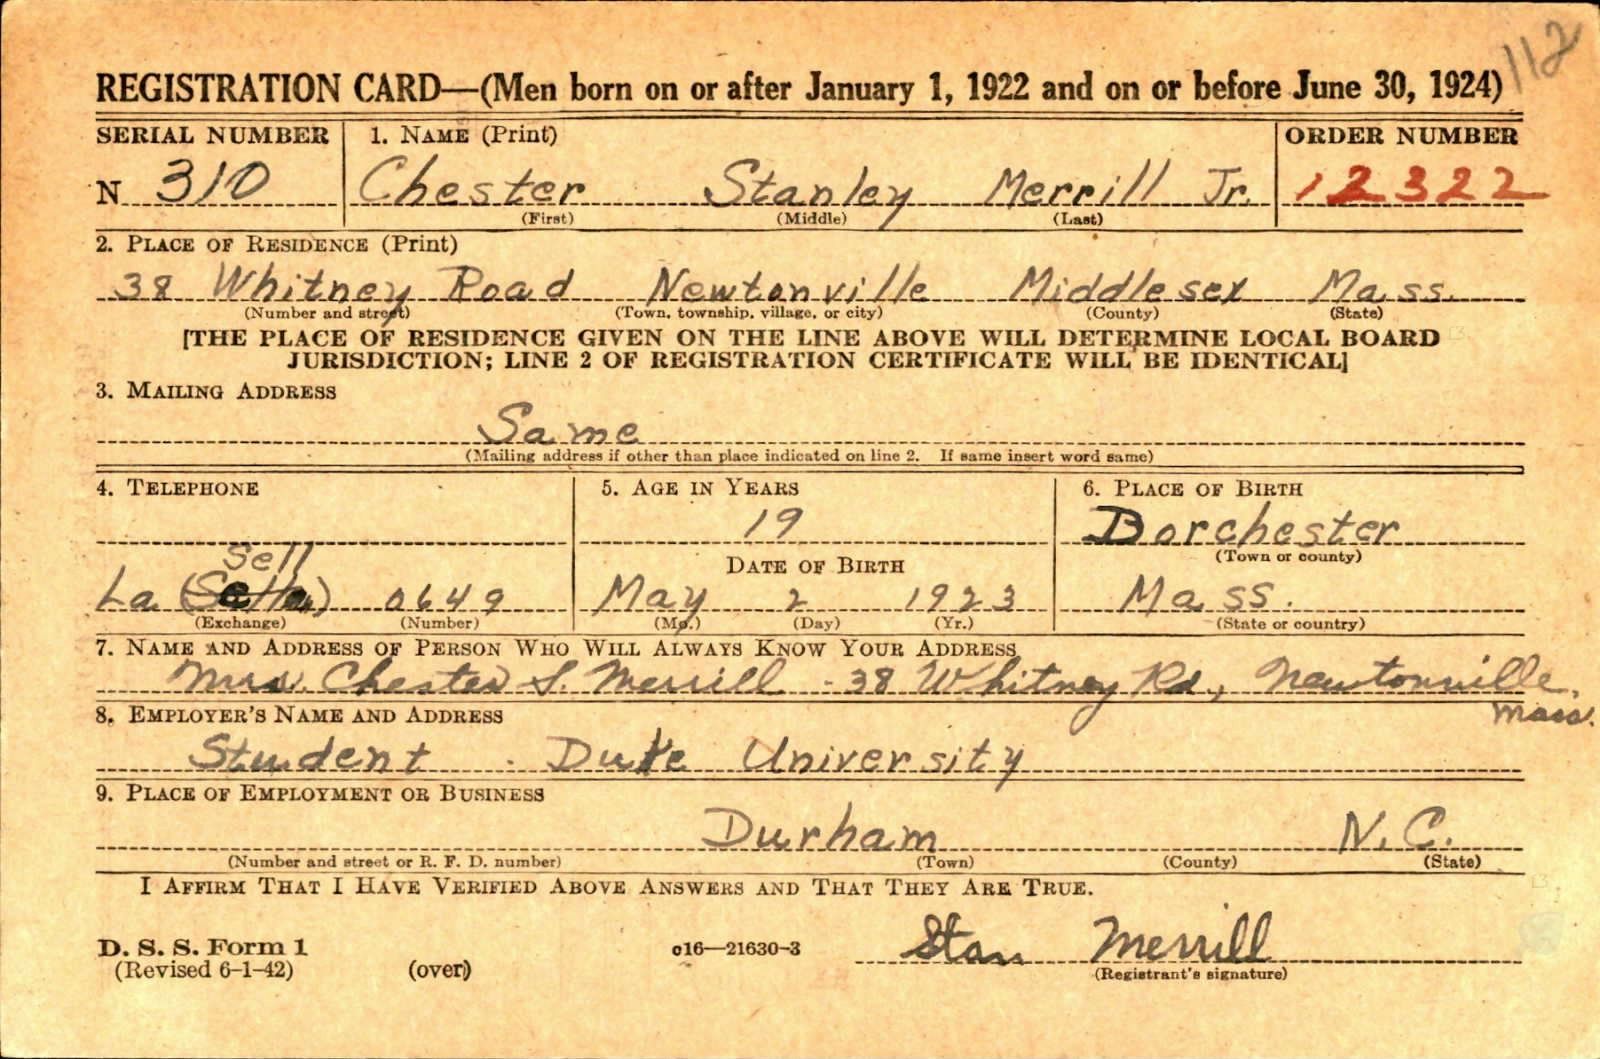 112
REGISTRATION CARD—(Men born on or after January 1, 1922 and on or before June 30, 1924)
SERIAL NUMBER 1. NAME (Print) ORDER NUMBER
N 310 Chester Stanley Merrill Jr. 12322
(First) (Middle) (Last)
2. PLACE OF RESIDENCE (Print)
38 Whitney Road Newtonville Middlesex Mass.
(Number and street) (Town, township, village, or city) (County) (State)
[THE PLACE OF RESIDENCE GIVEN ON THE LINE ABOVE WILL DETERMINE LOCAL BOARD
JURISDICTION; LINE 2 OF REGISTRATION CERTIFICATE WILL BE IDENTICAL]
3. MAILING ADDRESS
Same
(Mailing address if other than place indicated on line 2. If same insert word same)
4. TELEPHONE 5. AGE IN YEARS 6. PLACE OF BIRTH
19 Dorchester
(Town or county)
Sell DATE OF BIRTH
La 0649 May 2 1923 Mass.
(Exchange) (Number) (Mo.) (Day) (Yr.) (State or country)
7. NAME AND ADDRESS OF PERSON WHO WILL ALWAYS KNOW YOUR ADDRESS
Mrs. Chester S. Merrill - 38 Whitney Rd., Newtonville,
Mass.
8. EMPLOYER'S NAME AND ADDRESS
Student - Duke University
9. PLACE OF EMPLOYMENT OR BUSINESS
Durham N.C.
(Number and street or R. F. D. number) (Town) (County) (State)
I AFFIRM THAT I HAVE VERIFIED ABOVE ANSWERS AND THAT THEY ARE TRUE.
D. S. S. Form 1 c16—21630-3 Stan Merrill
(Revised 6-1-42) (over) (Registrant's signature)